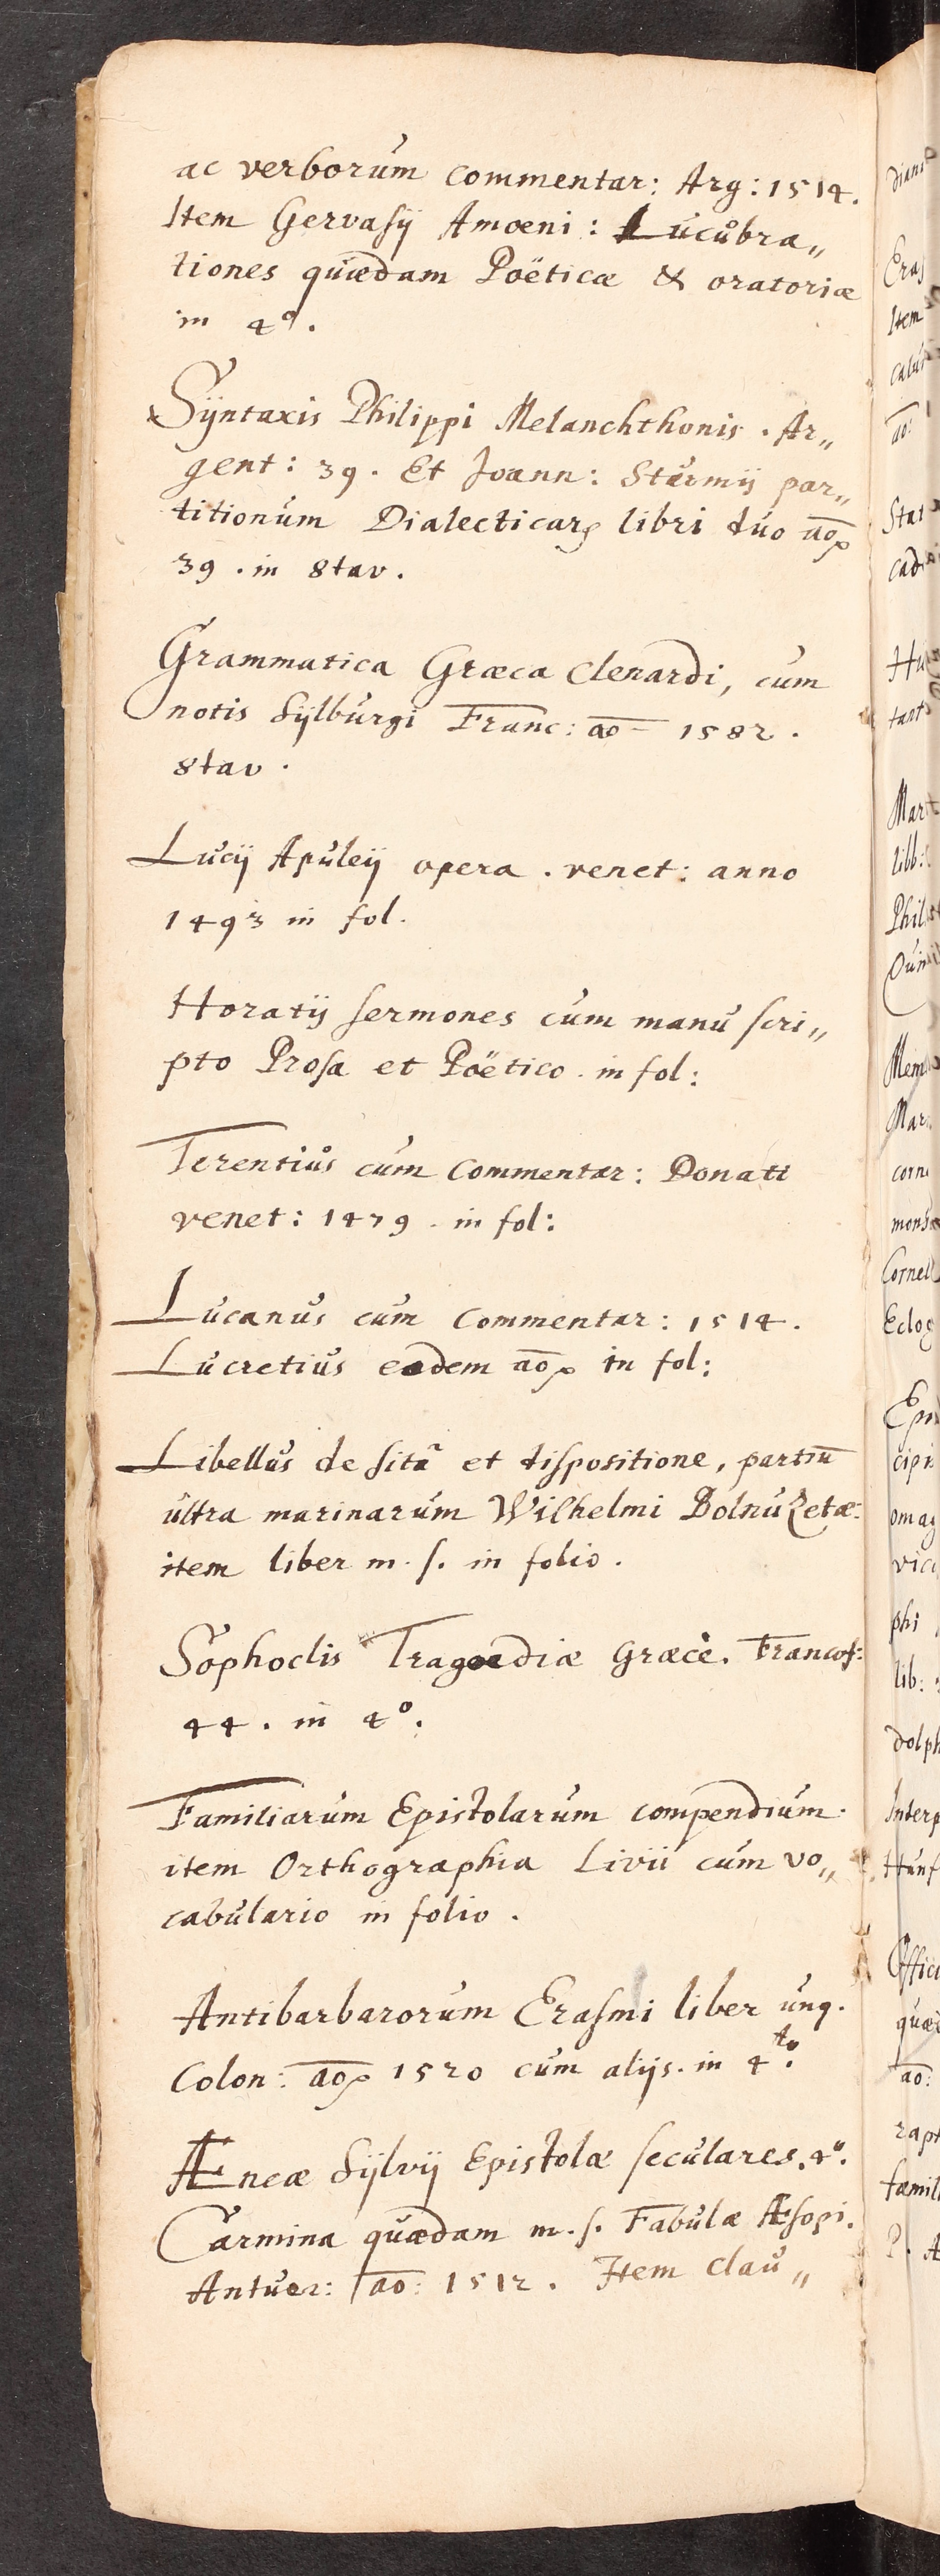 ac verborum commentar: Arg: 1514.
Item Gervasij Amoeni: Lucubra„
tiones quædam Poëticæ & oratoriæ
in 4o.
Syntaxis Philippi Melanchthonis. Ar„
gent: 39. Et Joann: Sturmij par„
titionum Dialecticarꝝ libri duo ao
39. in 8tav.
Grammatica Græca Clenardi, cum
notis Sylburgi Franc: ao 1582.
8tav.
Lucij Apuleij opera. venet: anno
1493 in fol.
Horatij sermones cum manu scri„
pto Prosa et Poëtico. in fol:
Terentius cum Commentar: Donati
venet: 1479. in fol:
Lucanus cum Commentar: 1514.
Lucretius eodem ao in fol:
Libellus de sitū et dispositione, partiū
ultra marinarum Wilhelmi
item liber m. s. in folio.
Sophoclis Tragoediæ Græcè. Francof:
44. in 4o.
Familiarum Epistolarum compendium.
item Orthographia Livii cum vo„
cabulario in folio.
Antibarbarorum Erasmi liber unq.
Colon: ao 1520 cum alijs. in 4to.
Æneæ Sylvij Epistolæ seculares. 4o.
Carmina quædam m. s. Fabulæ Æsopi.
Antuer: ao: 1512. Item Clau„